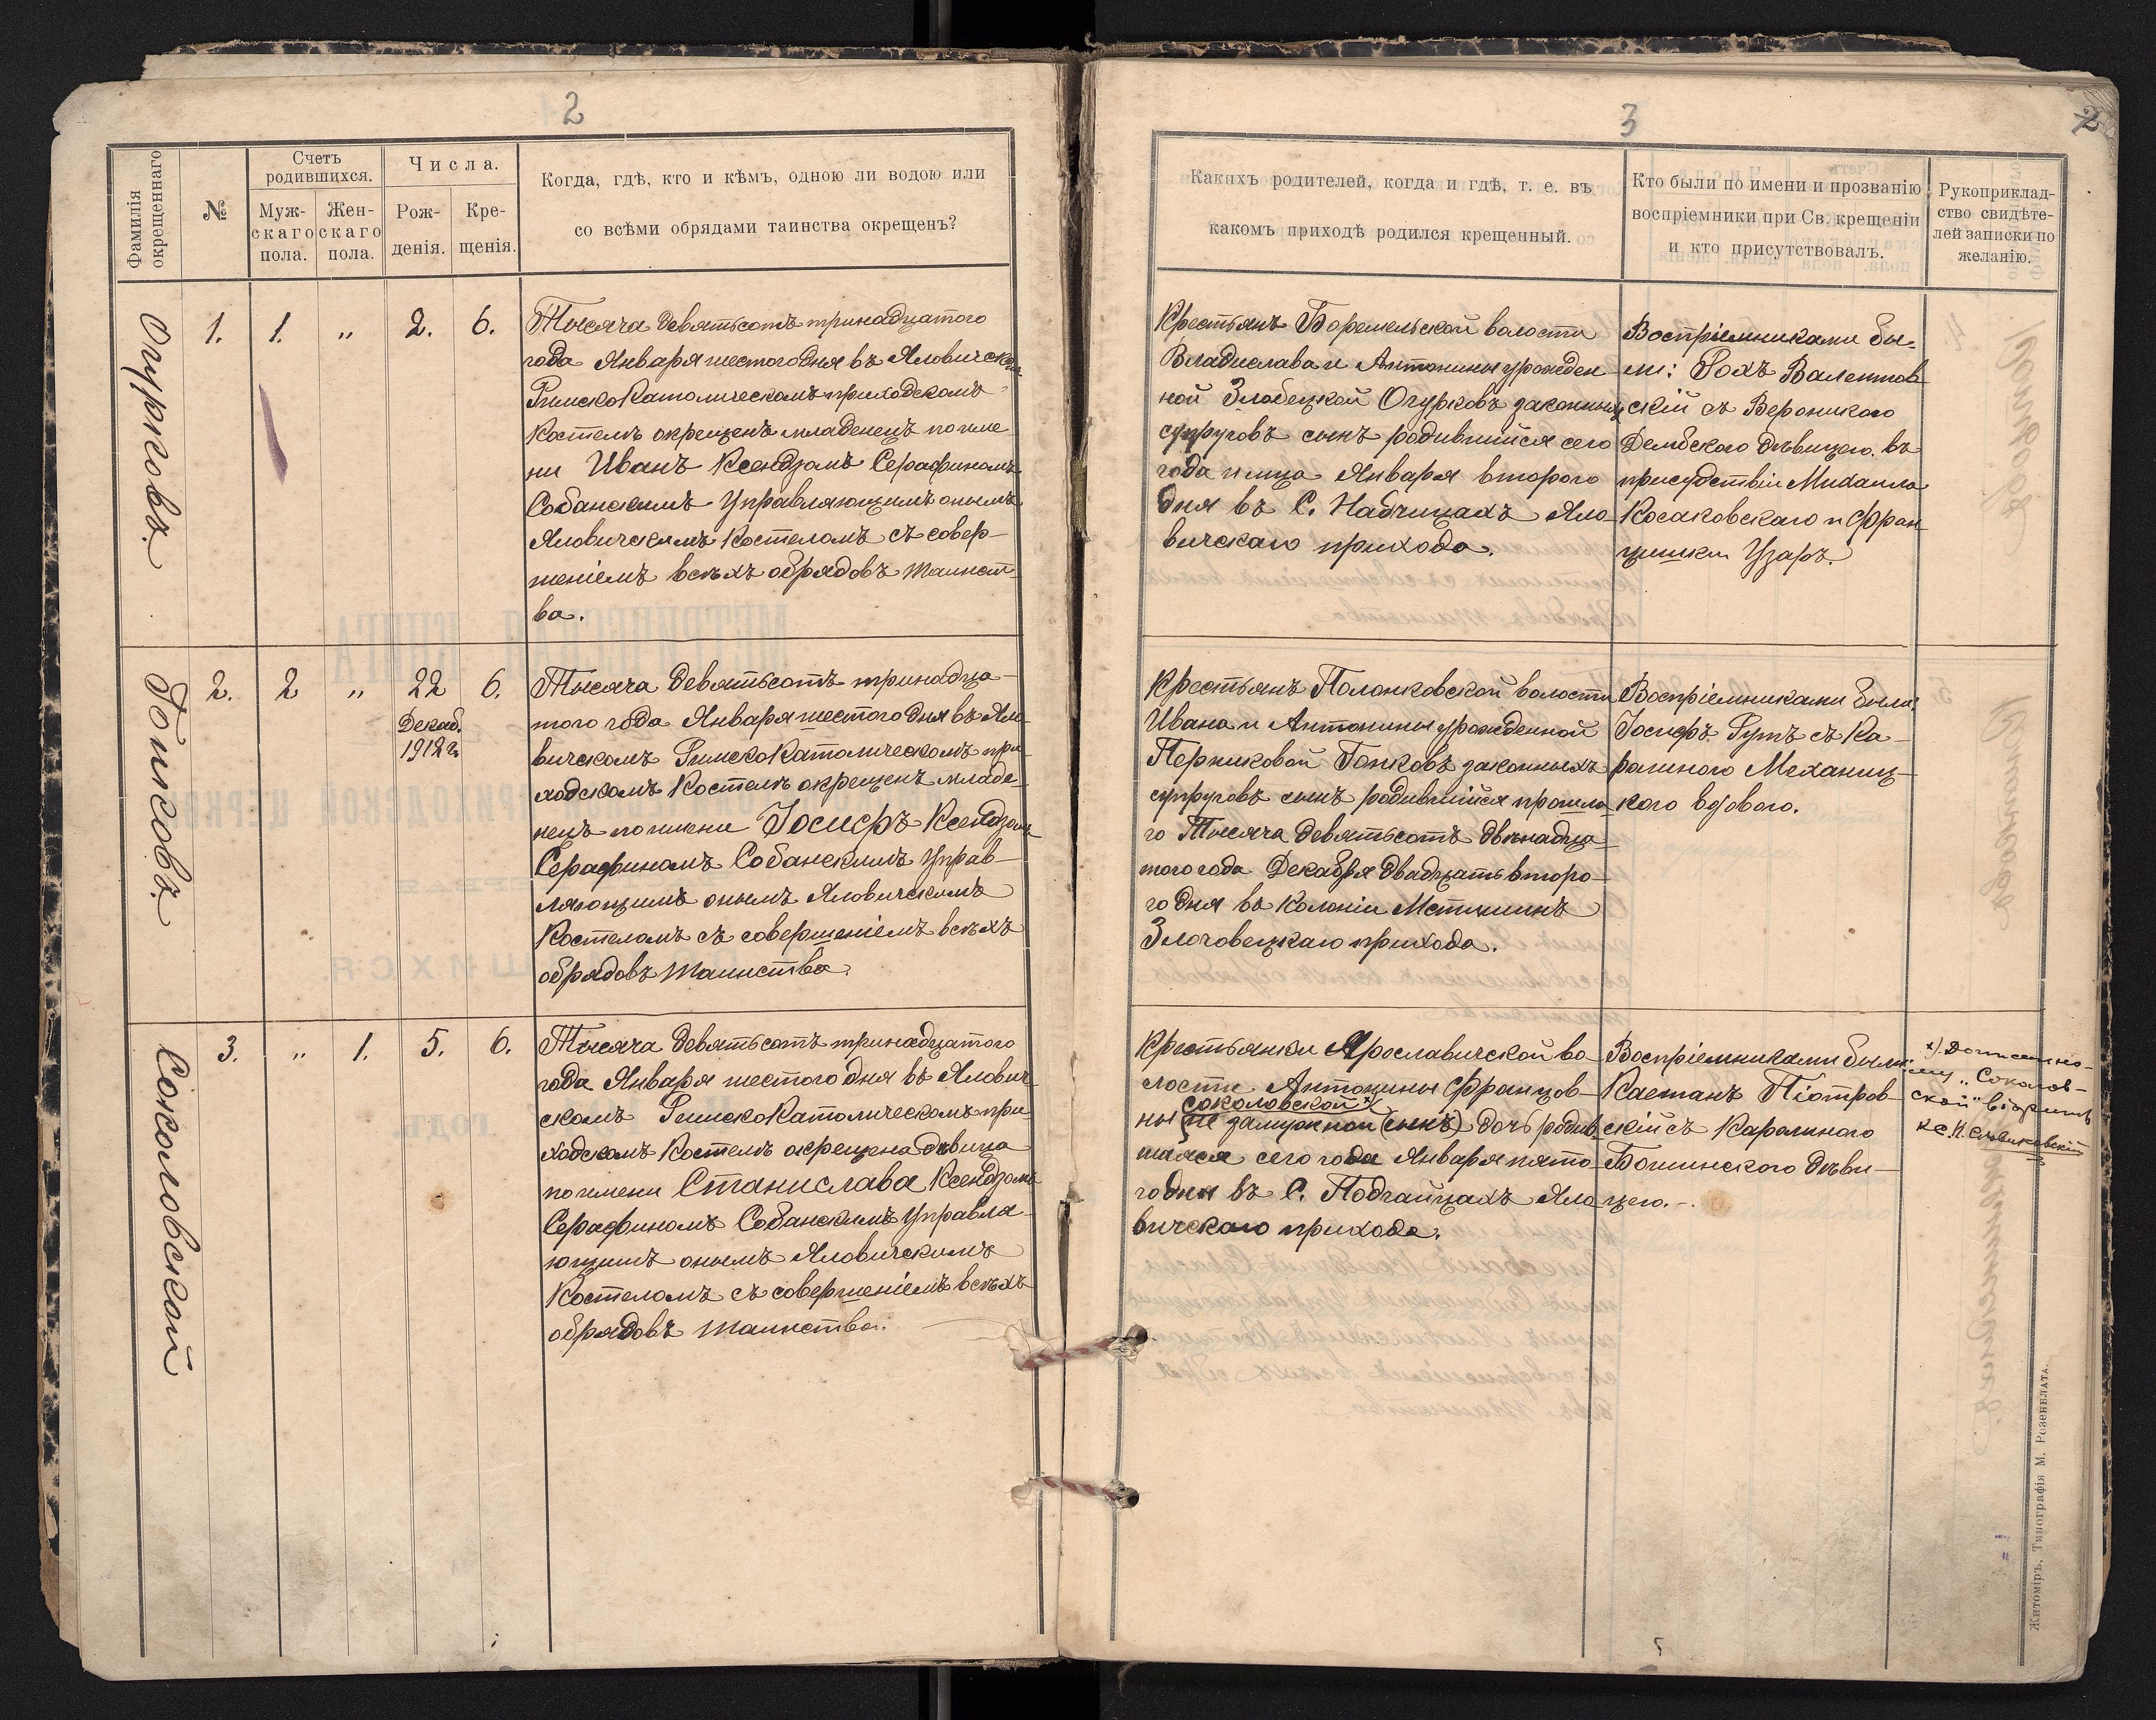 2
Фамилія
окрещеннаго
№
Счетъ
родившихся.
Муж-
скаго
пола.
Жен-
скаго
пола.
Числа.
Рож-
денія.
Кре-
щенія.
Когда, гдѣ, кто и кѣмъ, одною ли водою или
со всѣми обрядами таинства окрещенъ?
Огурковъ.
1. 1. „ 2. 6.
Тысяча девятьсотъ тринадцатого
года Января шестого дня въ Яловичском
Римско Католическомъ приходскомъ
Костелѣ окрещенъ младенецъ по име-
ни Иванъ Ксендзомъ Серафиномъ
Собанскимъ Управляющимъ онымъ
Яловичскимъ Костеломъ съ совер-
шеніемъ всѣхъ обрядовъ таинст-
ва.
Гопковъ.
2. 2 „ 22 6.
Декаб.
1912 г.
Тысяча девятьсотъ тринадца-
того года Января шестого дня въ Яло-
вичскомъ Римско Католическомъ при-
ходскомъ Костелѣ окрещенъ младе-
нецъ по имени Іосифъ Ксендзомъ
Серафиномъ Собанскимъ Управ-
ляющимъ онымъ Яловичскимъ
Костеломъ съ совершеніемъ всѣхъ
обрядовъ таинства.
Соколовской
3. „ 1. 5. 6.
Тысяча девятьсотъ тринадцатого
года Января шестого дня въ Ялович-
скомъ Римско Католическомъ при-
ходскомъ Костелѣ окрещена дѣвица
по имени Станислава Ксендзомъ
Серафиномъ Собанскимъ Управля-
ющимъ онымъ Яловичскимъ
Костеломъ съ совершеніемъ всѣхъ
обрядовъ таинства.
3
2
Какихъ родителей, когда и гдѣ, т. е. въ
какомъ приходѣ родился крещенный.
Кто были по имени и прозванію
воспріемники при Св. крещеніи
и кто присутствовалъ.
Рукоприклад-
ство свидѣте-
лей записки по
желанію.
Крестьянъ Боремельской волости
Владислава и Антонины урожден-
ной Злобецкой Огурковъ законных
супруговъ сынъ родившійся сего
года мца Января второго
дня въ С. Набчицахъ Яло-
вичскаго прихода.
Воспріемниками бы-
ли: Рохъ Валентов-
скій съ Вероникою
Дембскою дѣвицею. въ
присудствіи Михаила
Косаковскаго и Фран-
цишки Узаръ.
Крестьянъ Полонковской волости
Ивана и Антонины урожденной
Перниковой Гопковъ законныхъ
супруговъ сынъ родившійся прошло-
го Тысяча девятьсотъ двѣнадца-
того года Декабря двадцать второ-
го дня въ Колоніи Мстишинѣ
Злочовецкаго прихода.
Воспріемниками были:
Іосифъ Гутъ съ Ка-
ролиною Механиц-
кою вдовою.
Крестьянки Ярославичской во-
лости Антонины Францов-
Соколовской х)
ны не замужной (сынъ) дочь родив-
шаяся сего года Января пято-
го дня въ С. Подгайцахъ Яло-
вичскаго прихода.
Воспріемниками были:
Каетанъ Піотров-
скій съ Каролиною
Бошинскою дѣви-
цею.
х) Дописанно-
му „Соколов-
ской“ вѣрить
Житоміръ, Типографія М. Розенблата.